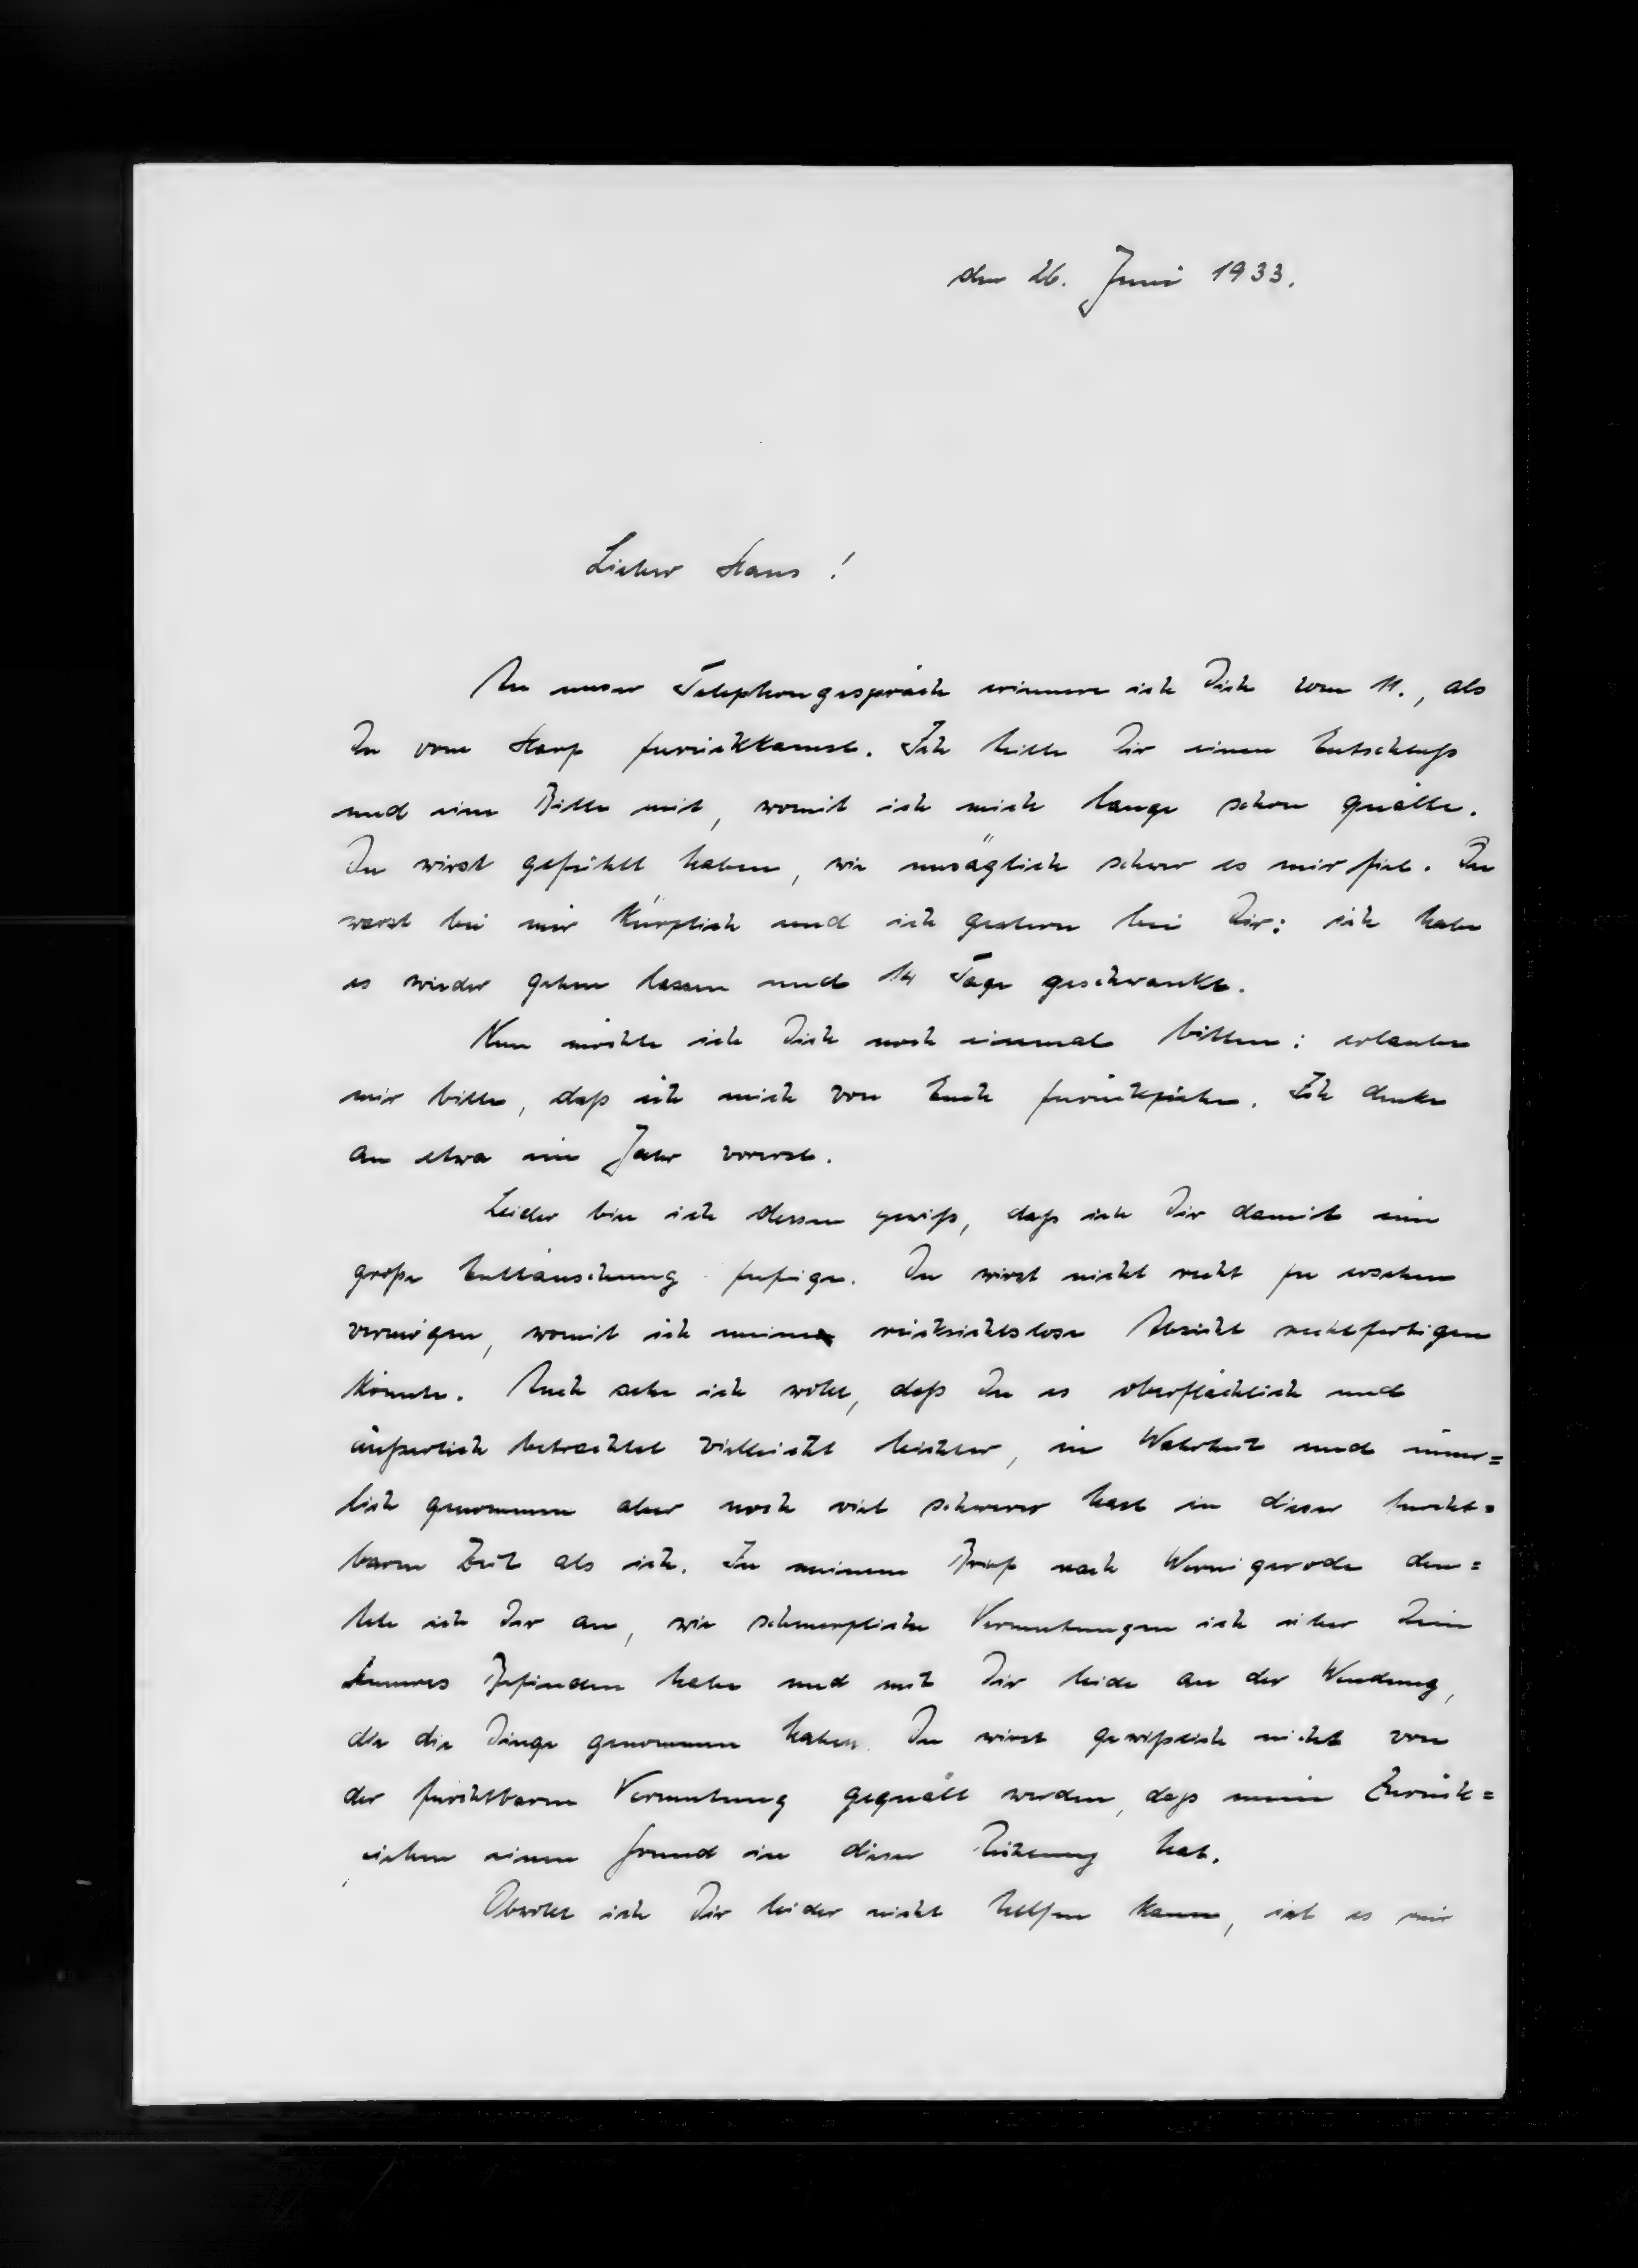 den 26. Juni 1933.
Lieber Hans!
An unser Telephongespräch erinnere ich Dich vom 11., als
Du vom Harz zurückkamst. Ich teilte Dir einen Entschluß
und eine Bitte mit, womit ich mich lange schon quälte.
Du wirst gefühlt haben, wie unsäglich schwer es mir fiel. Du
warst bei mir kürzlich und ich gestern bei Dir: ich habe
es wieder gehen lassen und 14 Tage geschwankt.
Nun möchte ich Dich noch einmal bitten: erlaube
mir bitte, daß ich mich von Euch zurückziehe. Ich denke
an etwa ein Jahr vorerst.
Leider bin ich dessen gewiß, daß ich Dir damit eine
große Enttäuschung zufüge. Du wirst nicht recht zu ersehen
vermögen, womit ich meine rücksichtslose Absicht rechtfertigen
könnte. Auch sehe ich wohl, daß Du es oberflächlich und
äußerlich betrachtet vielleicht leichter, in Wahrheit und inner=
lich genommen aber noch viel schwerer hast in dieser furcht=
baren Zeit als ich. In meinem Brief nach Wernigerode deu=
tete ich Dir an, wie schmerzliche Vermutungen ich über Dein
Inneres Befinden habe und mit Dir leide an der Wendung,
die die Dinge genommen haben. Du wirst gewißlich nicht von
der furchtbaren Vermutung gequält werden, daß mein Zurück=
ziehen einen Grund in dieser Richtung hat.
Obwohl ich Dir leider nicht helfen kann, ist es mir